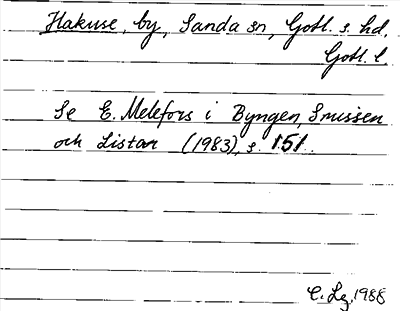 Hakuse, by, Sanda sn, Gotl. s. hd,
Gotl. l.
Se E. Melefors i Byngen, Smissen
och Listar (1983), s. 151.
C. Lg, 1988